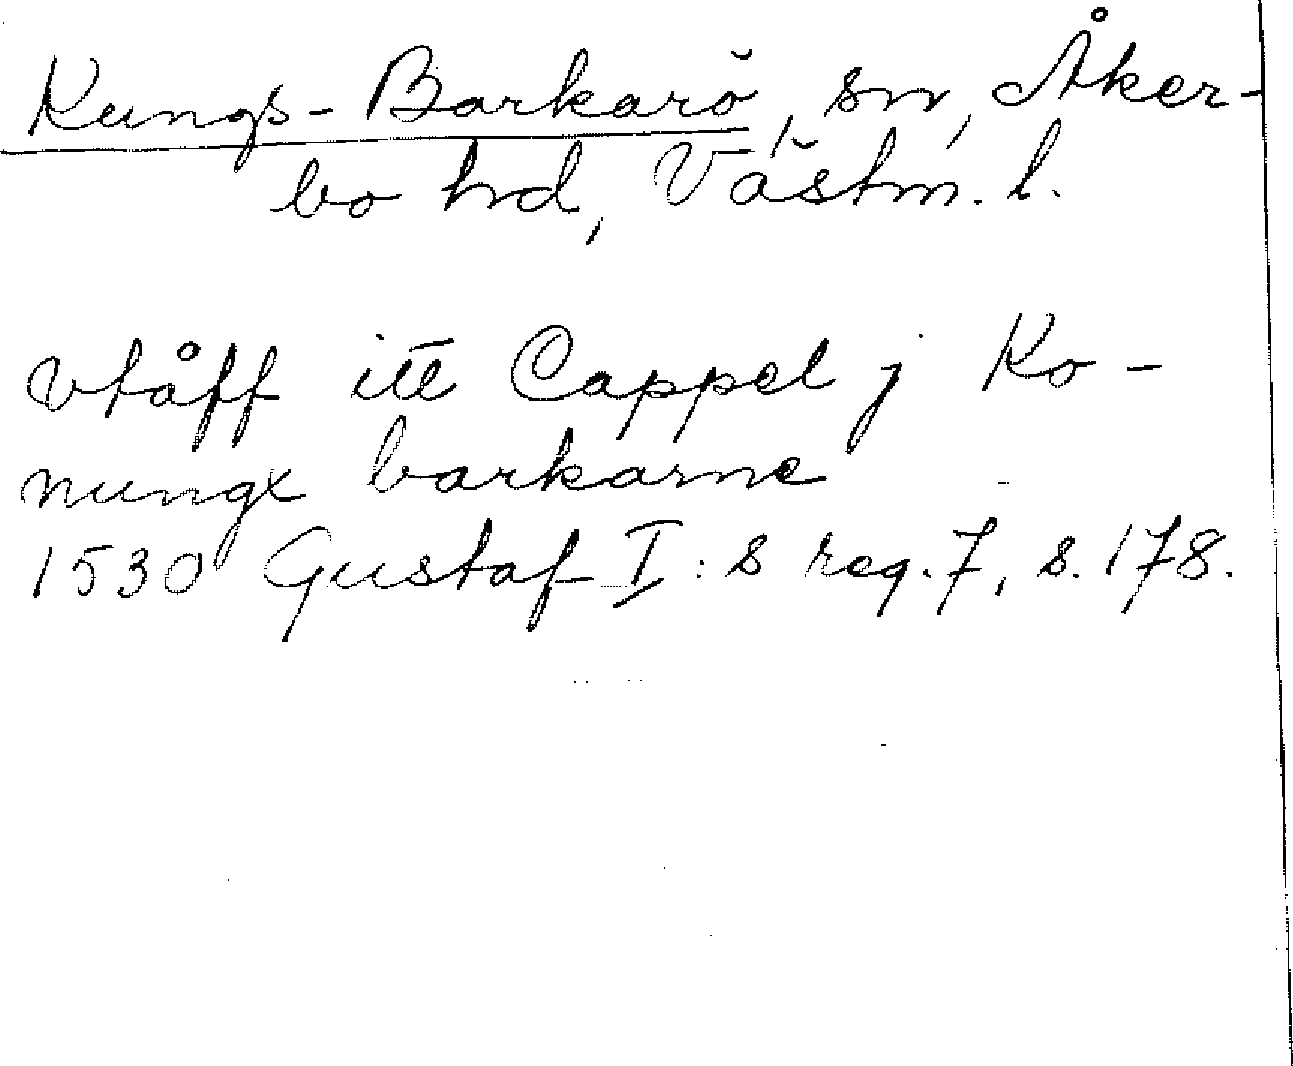 Kungs-Barkarö, sn, Åker-
bo hd, Västm. l.
vtåff itt Cappel j Ko-
nungx barkarne
1530 Gustaf I:s reg. 7, s. 178.